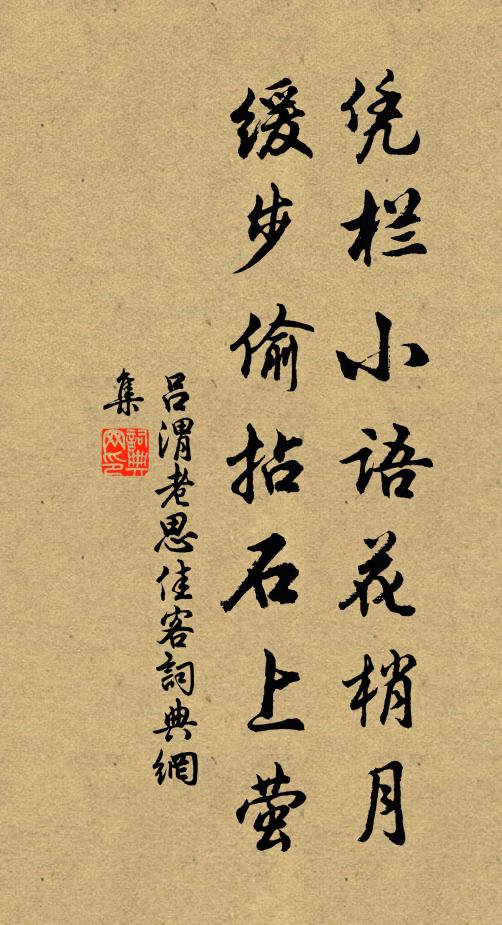 凭栏小语花梢月
缓步偷拈石上萤
吕渭老思佳客詞典網
集
詞典
网印